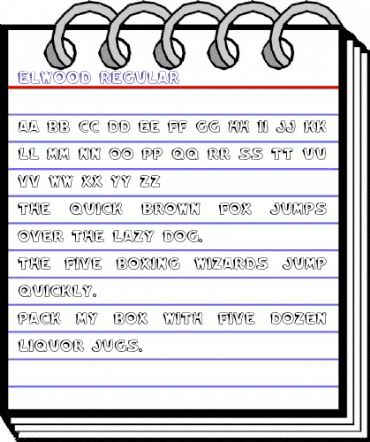 ELWOOD REGULAR
AA BB CC DD EE FF GG HH II JJ KK
LL MM NN OO PP QQ RR SS TT UU
VV WW XX YY ZZ
THE QUICK BROWN FOX JUMPS
OVER THE LAZY DOG.
THE FIVE BOXING WIZARDS JUMP
QUICKLY.
PACK MY BOX WITH FIVE DOZEN
LIQUOR JUGS.